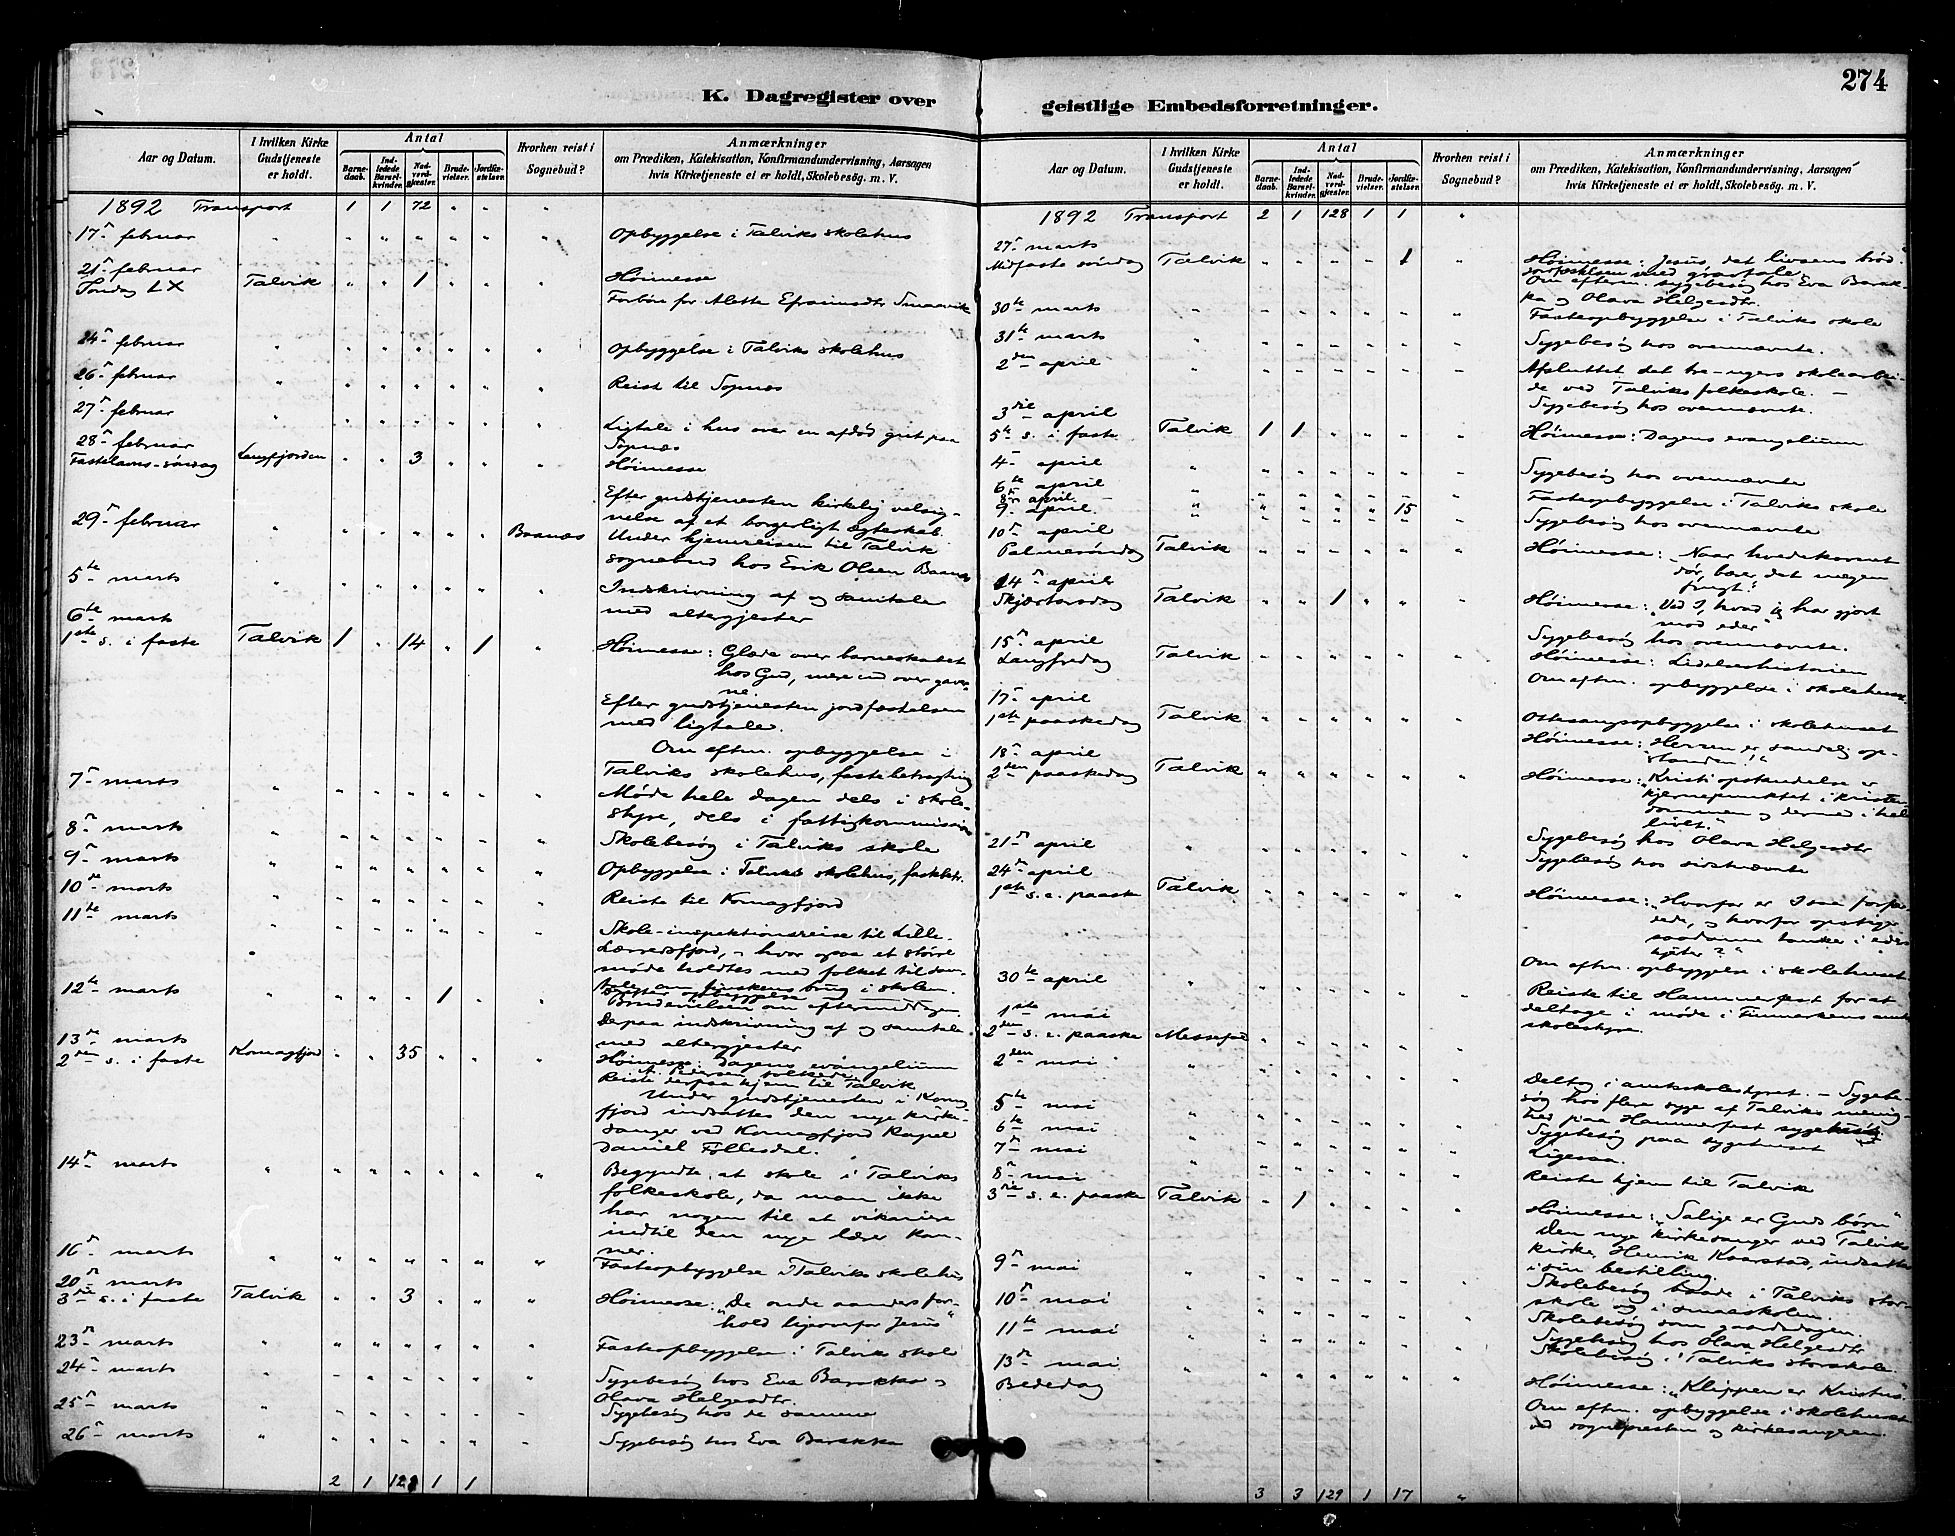 274
K. Dagregister over
geistlige Embedsforretninger.
Aar og Datum.
I hvilken Kirke Gudstjeneste er holdt.
Antal
Barnedaab.
Indledede Barselkvinder.
Nadverdgjester.
Brudevielser.
Jordfæstelser.
Hvorhen reist i Sognebud?
Anmærkninger
om Prædiken, Katekisation, Konfirmandundervisning, Aarsagen
hvis Kirketjeneste ei er holdt, Skolebesøg. m. V.
1892 Transport 1 1 72 " " "
17de februar " " " " " " " Opbyggelse i Talviks skolehus
21de februar
Søndag LX Talvik " " 1 " " " Høimesse
Forbøn for Alette Efraimsdtr Smaavik
24de februar " " " " " " " Opbyggelse i Talviks skolehus
26de februar " " " " " " " Reist til Sopnæs
27de februar " " " " " " " Ligtale i hus over en afdød gut paa
Sopnæs
28de februar
Fastelavns-søndag Langfjorden " " 3 " " " Høimesse
Efter gudstjenesten kirkelig velsig-
nelse af et borgerligt ægteskab.
29de februar " " " " " " Baanæs Under hjemreisen til Talvik
sognebud hos Erik Olsen Baanæs
5te marts " " " " " " " Indskrivning af og samtale
med altergjester
6te marts
1ste s. i faste Talvik 1 " 14 " 1 " Høimesse: Glæde over barneskabet
hos Gud, mere end over gaver-
ne.
Efter gudstjenesten jordfæstelsen
med ligtale.
Om eftm. opbyggelse i
Talviks skolehus, fastebetragtning
7de marts " " " " " " " Møde hele dagen dels i skole-
styre, dels i fattigkommission
8de marts " " " " " " " Skolebesøg i Talviks skole
9de marts " " " " " " " Opbyggelse i Talviks skolehus, fastebetr.
10de marts " " " " " " " Reiste til Komagfjord
11te marts " " " " " " " Skole-inspektionsreise til Lille-
Lerresfjord, – hvor ogsaa et større
møde holdtes med folket til sam-
tale om finskens brug i skolen.
Derefter opbyggelse
12te marts " " " " 1 " " Brudevielsen om eftermiddagen
Derpaa indskrivning af og samtale
med altergjester
13de marts
2den s. i faste Komagfjord " " 35 " " " Høimesse: Dagens evangelium
A. Pedersen tolkede.
Reiste derpaa hjem til Talvik
Under gudstjenesten i Komag-
fjord indsattes den nye kirke-
sanger ved Komagfjord Kapel
Daniel Follesdal.
14de marts " " " " " " " Begyndte at skole i Talviks
folkeskole, da man ikke
har nogen til at vikariere
indtil den nye lærer kom-
mer.
16de marts " " " " " " " Fasteopbyggelse i Talviks skolehus
20de marts
3die s. i faste Talvik " " 3 " " " Høimesse: "De onde aanders for-
hold ligeoverfor Jesus"
23de marts " " " " " " " Fasteopbyggelse i Talvik skole
24de marts " " " " " " " Sygebesøg hos Eva Barakka og
Olava Helgesdtr.
25de marts " " " " " " " Sygebesøg hos de samme
26de marts " " " " " " " Sygebesøg hos Eva Barakka
2 1 128 1 1
Aar og Datum.
I hvilken Kirke Gudstjeneste er holdt.
Antal
Barnedaab.
Indledede Barselkvinder.
Nadverdgjester.
Brudevielser.
Jordfæstelser.
Hvorhen reist i Sognebud?
Anmærkninger
om Prædiken, Katekisation, Konfirmandundervisning, Aarsagen
hvis Kirketjeneste ei er holdt, Skolebesøg. m. V.
1892 Transport 2 1 128 1 1 "
27de marts
Midfaste søndag Talvik " " " " 1 " Høimesse: Jesus, det livsens brød.
Jordfæstelsen med gravtale
Om efterm. sygebesøg hos Eva Barak-
ka og Olava Helgesdtr.
30te marts " " " " " " " Fasteopbyggelse i Talviks skole
31te marts " " " " " " " Sygebesøg hos ovennævnte.
2den april " " " " " " " Afsluttet det tre-ugers skolearbei-
de ved Talviks folkeskole. –
Sygebesøg hos ovennævnte.
3die april
5te s. i faste Talvik 1 1 " " " " Høimesse: Dagens evangelium
4de april " " " " " " " Sygebesøg hos ovennævnte
6te april " " " " " " " Fasteopbyggelse i Talviks skole
8de april. " " " " 15 "
9de april. " " " " " " " Sygebesøg hos ovennævnte
10de april
Palmesøndag Talvik " " " " " " Høimesse: "Naar hvedekornet
dør, bærer det megen
frugt."
14de april
Skjærtorsdag Talvik " " 1 " " " Høimesse: "Ved I, hvad jeg har gjort
mod eder"
Sygebesøg hos ovennævnte.
15de april
Langfredag Talvik " " " " " " Høimesse: Lidelseshistorien
Om eftm. opbyggelse i skolehuset.
17de april
1ste paaskedag Talvik " " " " " " Ottesangsopbyggelse i skolehuset
Høimesse: "Herren er sandelig op-
standen!"
18de april
2den paaskedag Talvik " " " " " " Høimesse: "Kristi opstandelse er
kjernepunktet i kristen-
dommen og dermed i hele
livet."
21de april " " " " " " " Sygebesøg hos Olava Helgesdtr
Sygebesøg hos sidstnævnte
24de april
1ste s. e. paaske Talvik " " " " " " Høimesse: "Hvorfor er I saa forfær-
dede, og hvorfor opstige
saadanne tanker i eders
hjerter?"
Om eftm. opbyggelse i skolehuset.
30te april " " " " " " " Reiste til Hammerfest for at
deltage i møde i Finmarkens amts
skolestyre.
1ste mai
2den s. e. paaske Messefal " " " " " "
2den mai " " " " " " " Deltog i amtsskolestyret. – Sygebe-
søg hos flere syge af Talviks menig-
hed paa Hammerfest sygehus
5te mai " " " " " " " Sygebesøg paa sygehuset
6te mai " " " " " " " Ligesaa.
7de mai " " " " " " " Reiste hjem til Talvik
8de mai
3die s. e. paaske Talvik " 1 " " " " Høimesse: "Salige er Guds børn"
Den nye kirkesanger ved Talviks
kirke, Henrik Kaarstad, indsattes
i sin bestilling.
9de mai " " " " " " " Skolebesøg baade i Talviks stor-
skole og i smaaskolen.
10de mai " " " " " " " Skolebesøg som gaarsdagen.
11te mai " " " " " " " Sygebesøg hos Olava Helgesdtr
Skolebesøg i Talviks storskole.
13de mai
Bededag " " " " " " " Høimesse: "Klippen er Kristus".
Om eftm. opbyggelse i skolehuset
ved sognepresten og kirkesangeren.
3 3 129 1 17 "